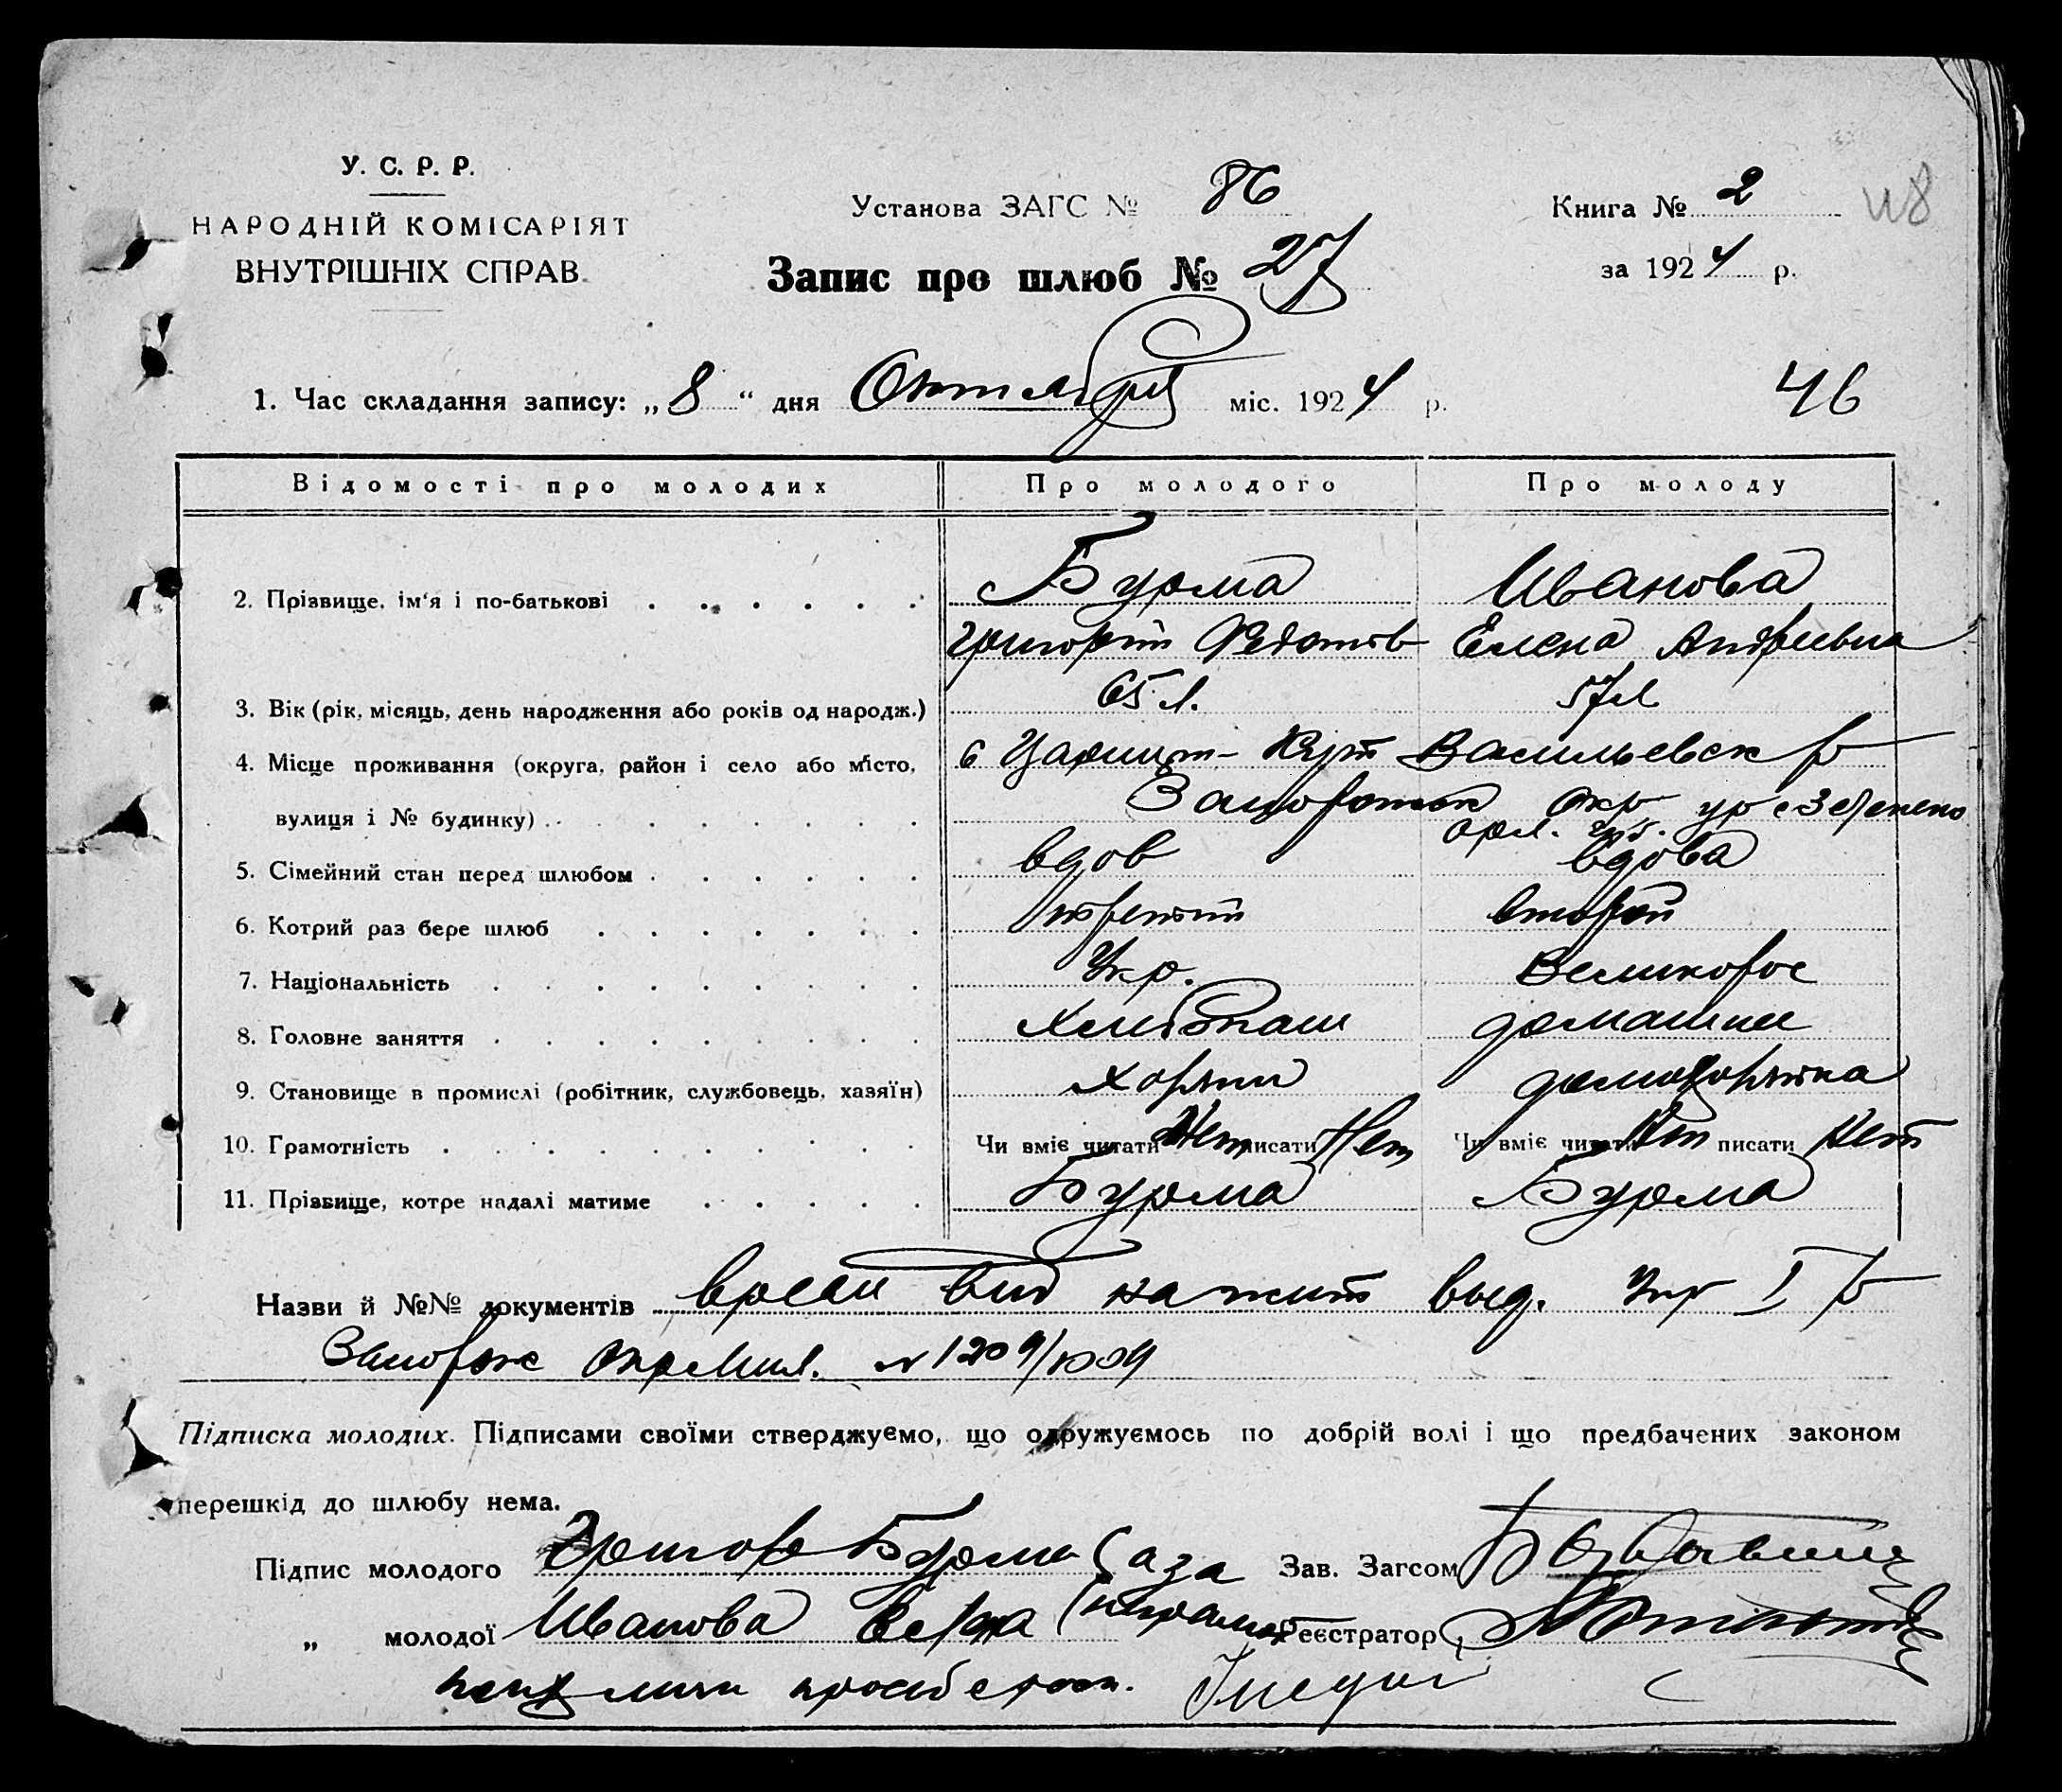 У. С. Р. Р.
НАРОДНІЙ КОМІСАРІЯТ
ВНУТРІШНІХ СПРАВ.
Установа ЗАГС № 86
Запис про шлюб № 27
Книга № 2
за 1924 р.
1. Час складання запису: „8“ дня Октября міс. 1924 р.
46
Відомості про молодих Про молодого Про молоду
2. Прізвище, ім'я і по-батькові Бурма Иванова
Григорий Федотов Елена Андреевна
3. Вік (рік, місяць, день народження або років од народж.) 65 л. 57 л
4. Місце проживання (округа, район і село або місто, с Царицын-Кут Васильевск р
вулиця і № будинку) Запорожск Окр ур с
Орл. губ.
5. Сімейний стан перед шлюбом вдов вдова
6. Котрий раз бере шлюб третий второй
7. Національність Укр. Великорос
8. Головне заняття Хлебопаш домашнее
9. Становище в промислі (робітник, службовець, хазяїн) Хозяин домохозяйка
10. Грамотність Чи вміє читати Нет писати Нет Чи вміє читати Нет писати Нет
11. Прізвище, котре надалі матиме Бурма Бурма
Назви й №№ документів времен вид на жит выд. Упр I р
Запорож ОкрМил. № 1209/
Підписка молодих. Підписами своїми стверджуємо, що одружуємось по добрій волі і що предбачених законом
перешкід до шлюбу нема.
Підпис молодого Бурма за Зав. Загсом
„ молодої Иванова неграмот Реєстратор